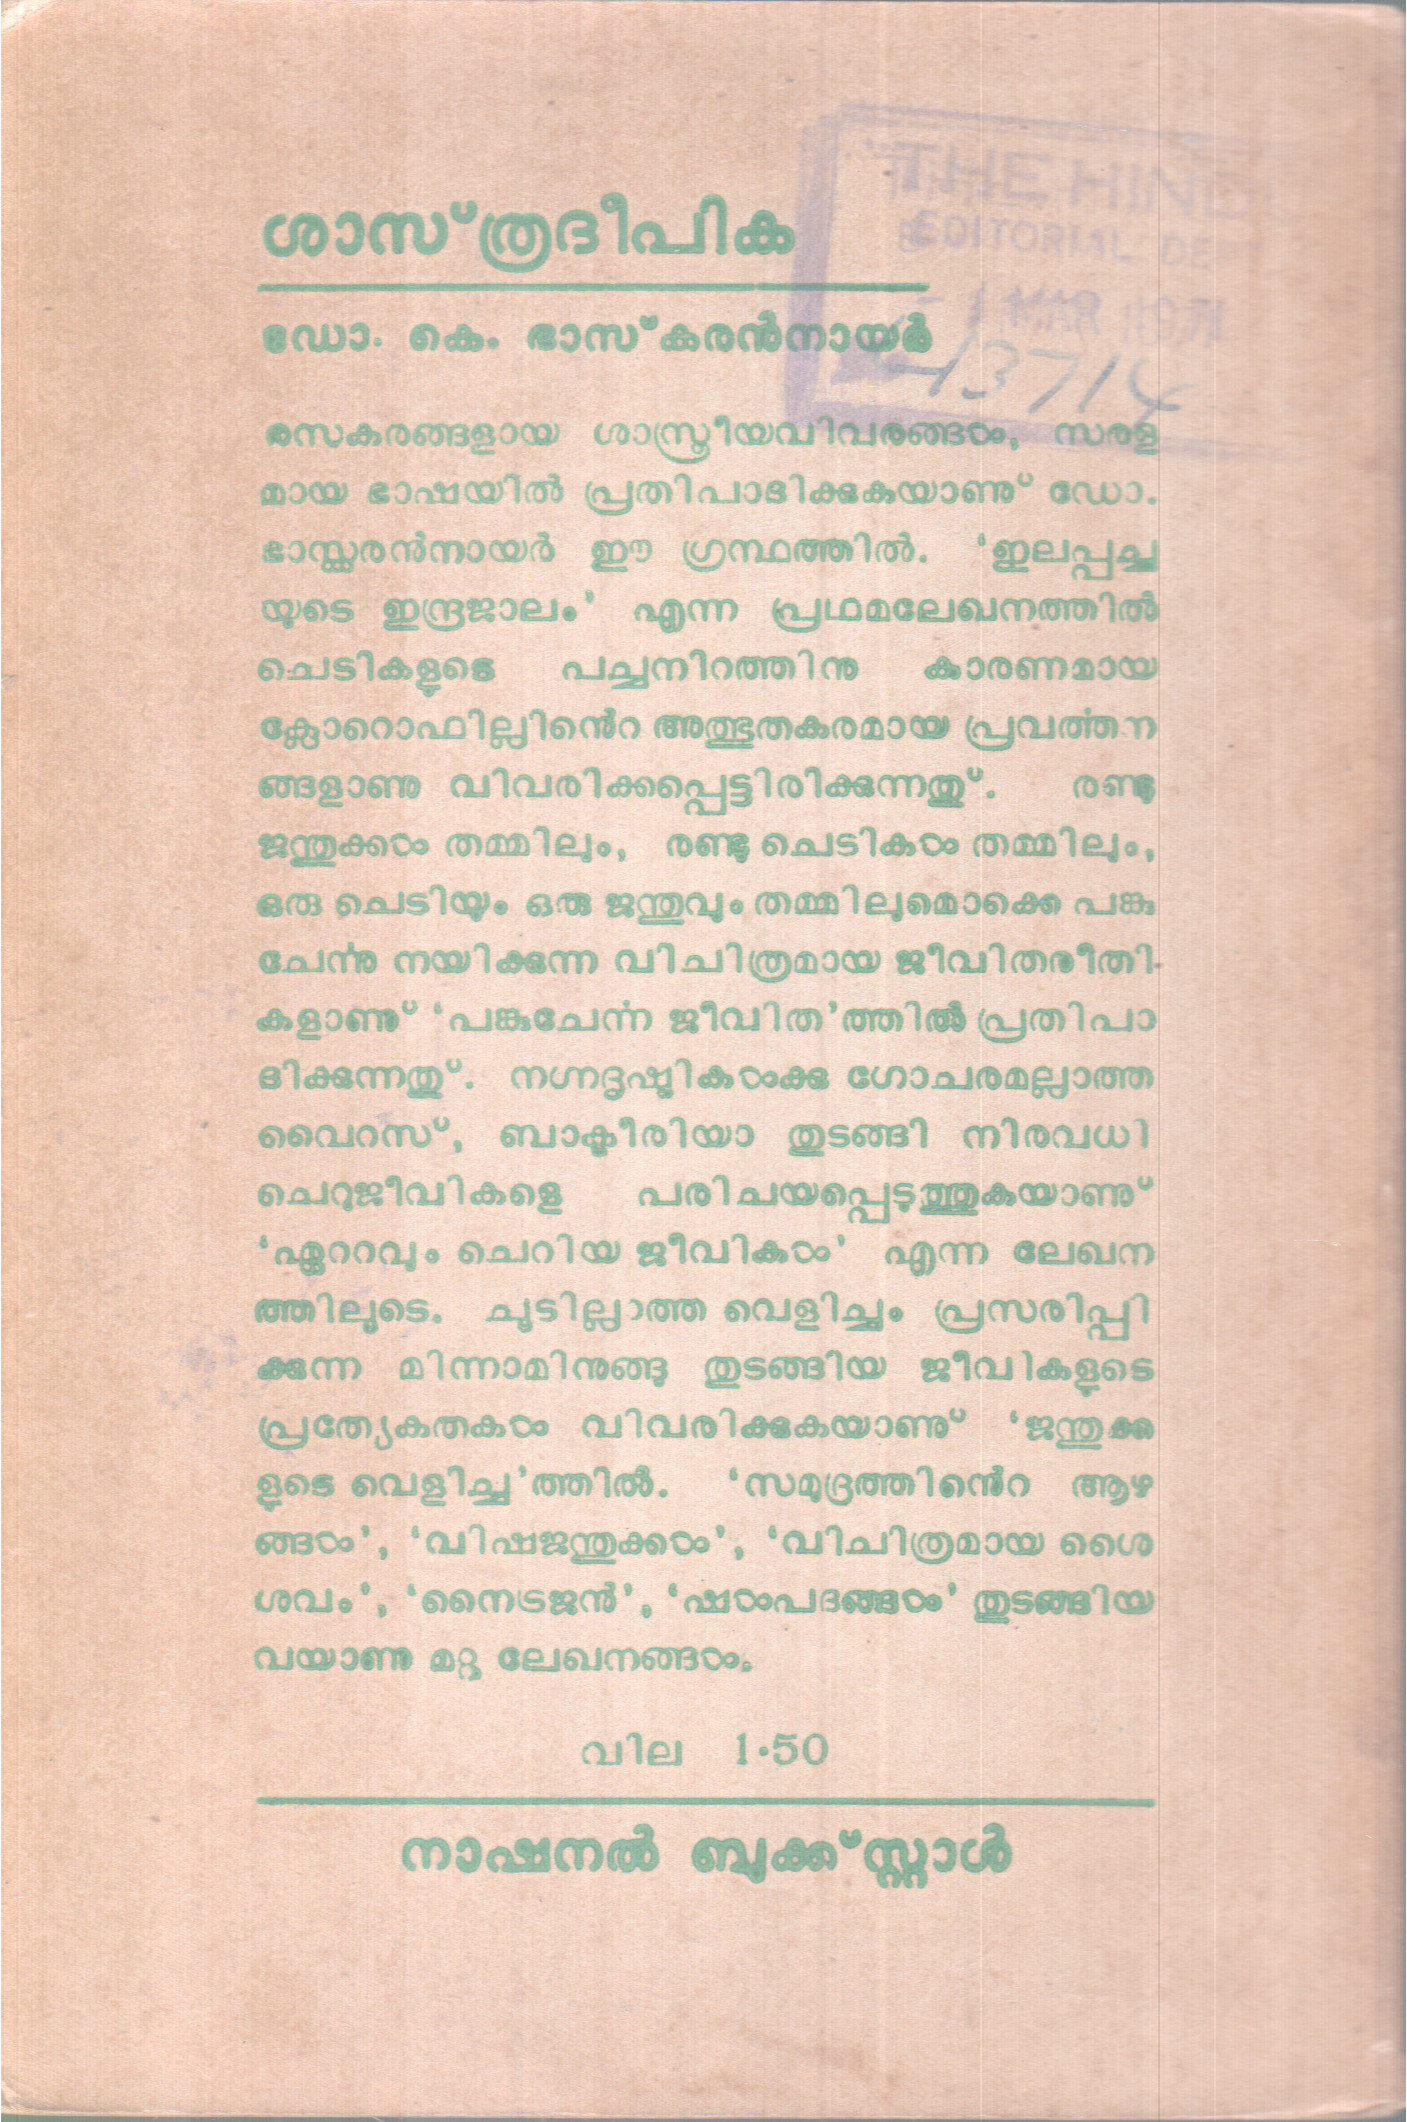 ശാസ്ത്രദീപിക
"THE HINDU
EDITORIAL DE
1 MAR 1971
ഡോ. കെ. ഭാസ്കരൻനായർ
43714
രസകരങ്ങളായ ശാസ്ത്രീയവിവരങ്ങൾ, സരള
മായ ഭാഷയിൽ പ്രതിപാദിക്കുകയാണു് ഡോ.
ഭാസ്കരൻനായർ ഈ ഗ്രന്ഥത്തിൽ. ‘ഇലപ്പച്ച
യുടെ ഇന്ദ്രജാലം’ എന്ന പ്രഥമലേഖനത്തിൽ
ചെടികളുടെ പച്ചനിറത്തിനു കാരണമായ
ക്ലോറൊഫില്ലിൻെറ അത്ഭുതകരമായ പ്രവൎത്തന
ങ്ങളാണു വിവരിക്കപ്പെട്ടിരിക്കുന്നതു്. രണ്ടു
ജന്തുക്കൾ തമ്മിലും, രണ്ടു ചെടികൾ തമ്മിലും,
ഒരു ചെടിയും ഒരു ജന്തുവും തമ്മിലുമൊക്കെ പങ്കു
ചേൎന്നു നയിക്കുന്ന വിചിത്രമായ ജീവിതരീതി
കളാണു് ‘പങ്കുചേൎന്ന ജീവിത’ത്തിൽ പ്രതിപാ
ദിക്കുന്നതു്. നഗ്നദൃഷ്ടികൾക്കു ഗോചരമല്ലാത്ത
വൈറസ്, ബാക്ടീരിയാ തുടങ്ങി നിരവധി
ചെറുജീവികളെ പരിചയപ്പെടുത്തുകയാണു്
‘ഏററവും ചെറിയ ജീവികൾ’ എന്ന ലേഖന
ത്തിലൂടെ. ചൂടില്ലാത്ത വെളിച്ചം പ്രസരിപ്പി
ക്കുന്ന മിന്നാമിനുങ്ങു തുടങ്ങിയ ജീവികളുടെ
പ്രത്യേകതകൾ വിവരിക്കുകയാണു് ‘ജന്തുക്ക
ളുടെ വെളിച്ച’ത്തിൽ. ‘സമുദ്രത്തിൻെറ ആഴ
ങ്ങൾ’, ‘വിഷജന്തുക്കൾ’, ‘വിചിത്രമായ ശൈ
ശവം’, ‘നൈട്രജൻ’, ‘ഷൾപദങ്ങൾ’ തുടങ്ങിയ
വയാണു മറ്റു ലേഖനങ്ങൾ.
വില 1·50
നാഷനൽ ബുക്ക്സ്റ്റാൾ